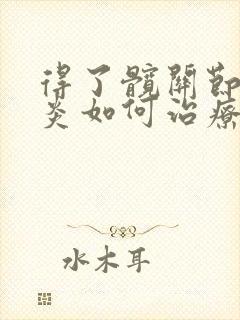 得了髖關節
炎如何治療
水木耳